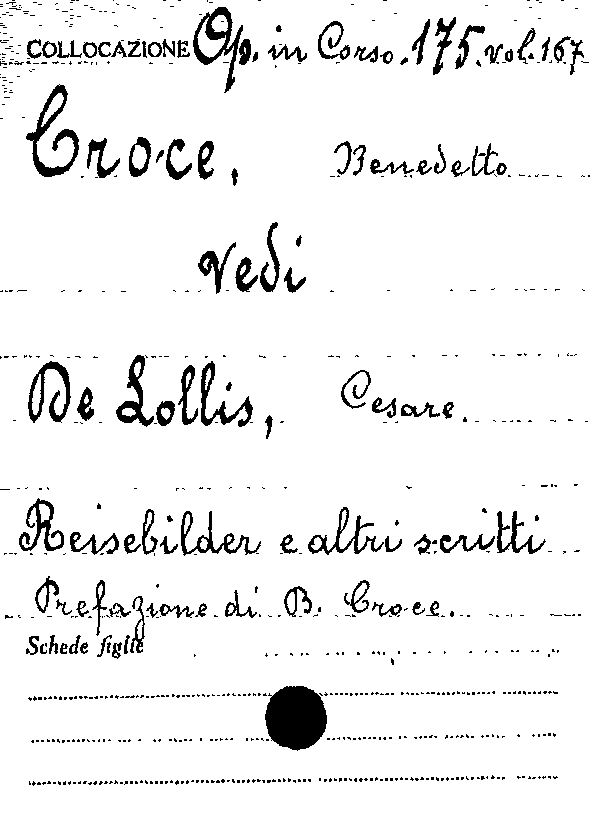 COLLOCAZIONE Op. in Corso. 175. vol. 167
Croce, Benedetto
vedi
De Lollis, Cesare.
Reisebilder e altri scritti
Prefazione di B. Croce.
Schede figlie